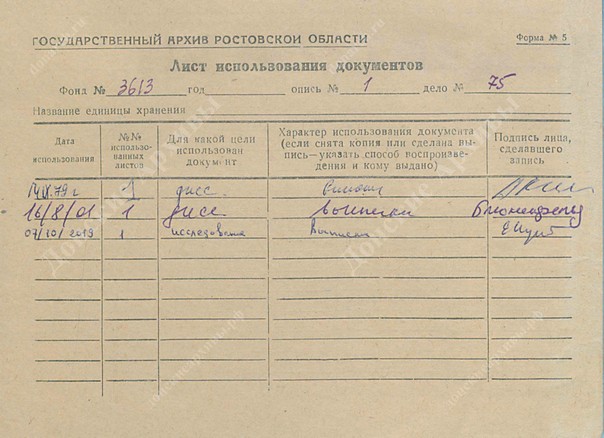 ГОСУДАРСТВЕННЫЙ АРХИВ РОСТОВСКОЙ ОБЛАСТИ Форма № 5
Лист использования документов
Фонд № 3613 год опись № 1 дело № 75
Название единицы хранения
Дата использования
№№ использо-
ванных
листов
Для какой цели
использован
документ
Характер использования документа
(если снята копия или сделана вы-
пись—указать способ воспроизве-
дения и кому выдано)
Подпись лица,
сделавшего
запись
1 дисс.
16/8/01 1 дисс выписки
07/10/2019 1 выписки
донские-архивы.рф